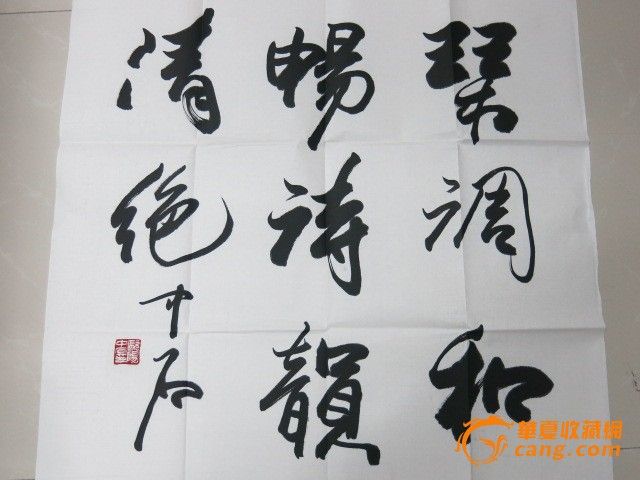 琹调和
畅诗韻
清绝中石
華夏收藏網
cang.com